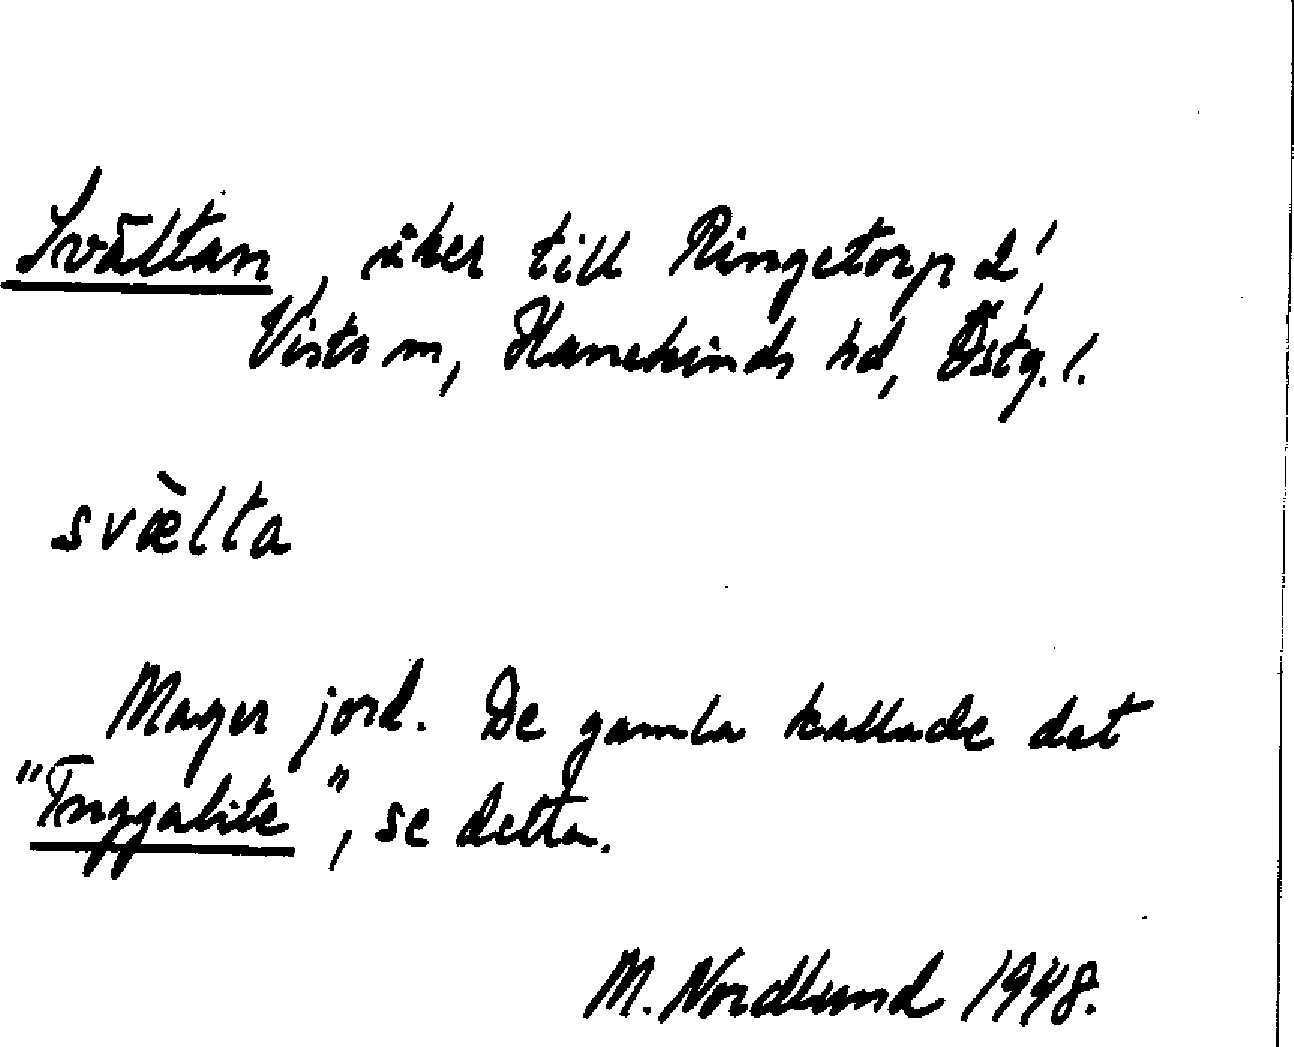 Svältan, åker till Ringetorp 2',
Vists sn, Hanekinds hd, Östg. l.
svæ̀lta
Mager jord. De gamla kallade det
"Tuggalite", se detta.
M. Nordlund 1948.